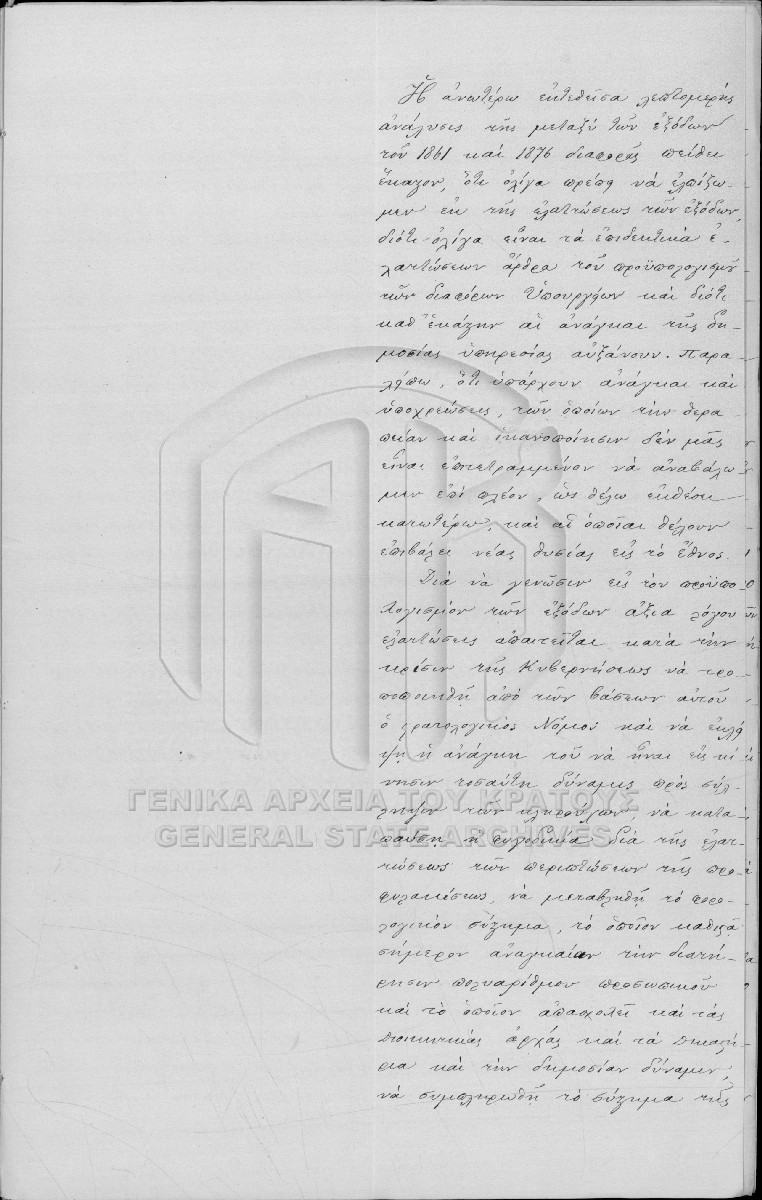 Ἡ ἀνωτέρω ἐκτεθεῖσα λεπτομερὴς
ἀνάλυσις τῆς μεταξὺ τῶν ἐξόδων
τοῦ 1861 καὶ 1876 διαφορᾶς πείθει
ἕκαστον, ὅτι ὀλίγα πρέπει νὰ ἐλπίζω-
μεν ἐκ τῆς ἐλαττώσεως τῶν ἐξόδων,
διότι ὀλίγα εἶναι τὰ ἐπιδεκτικὰ ἐ-
λαττώσεων ἄρθρα τοῦ προϋπολογισμοῦ
τῶν διαφόρων Ὑπουργείων καὶ διότι
καθ' ἑκάστην αἱ ἀνάγκαι τῆς δη-
μοσίας ὑπηρεσίας αὐξάνουν. Παρα-
λείπω, ὅτι ὑπάρχουν ἀνάγκαι καὶ
ὑποχρεώσεις, τῶν ὁποίων τὴν θερα
πείαν καὶ ἱκανοποίησιν δὲν μᾶς
εἶναι ἐπιτετραμμένον νὰ ἀναβάλω
μεν ἐπὶ πλέον, ὡς θέλω ἐκθέσει
κατωτέρω, καὶ αἱ ὁποῖαι θέλουν
ἐπιβάλει νέας θυσίας εἰς τὸ ἔθνος.
Διὰ νὰ γενῶσιν εἰς τὸν προϋπο
λογισμὸν τῶν ἐξόδων ἄξιαι λόγου
ἐλαττώσεις ἀπαιτεῖται κατὰ τὴν
κρίσιν τῆς Κυβερνήσεως νὰ τρο-
ποποιηθῇ ἀπὸ τῶν βάσεων αὐτοῦ
ὁ στρατολογικὸς Νόμος καὶ νὰ ἐκλεί
ψῃ ἡ ἀνάγκη τοῦ νὰ ἦναι εἰς κί
νησιν τοσαύτη δύναμις πρὸς σύλ-
ληψιν τῶν κληρούχων, νὰ κατα
παύσῃ ἡ φυγοδικία διὰ τῆς ἐλατ-
τώσεως τῶν περιπτώσεων τῆς προ
φυλακίσεως, νὰ μεταβληθῇ τὸ φορο-
λογικὸν σύστημα, τὸ ὁποῖον καθιστᾷ
σήμερον ἀναγκαίαν τὴν διατή-
ρησιν πολυαρίθμου προσωπικοῦ
καὶ τὸ ὁποῖον ἀπασχολεῖ καὶ τὰς
διοικητικὰς ἀρχὰς καὶ τὰ δικαστή
ρια καὶ τὴν δημοσίαν δύναμιν,
νὰ συμπληρωθῇ τὸ σύστημα τῆς
ΓΕΝΙΚΑ ΑΡΧΕΙΑ ΤΟΥ ΚΡΑΤΟΥΣ
GENERAL STATE ARCHIVES